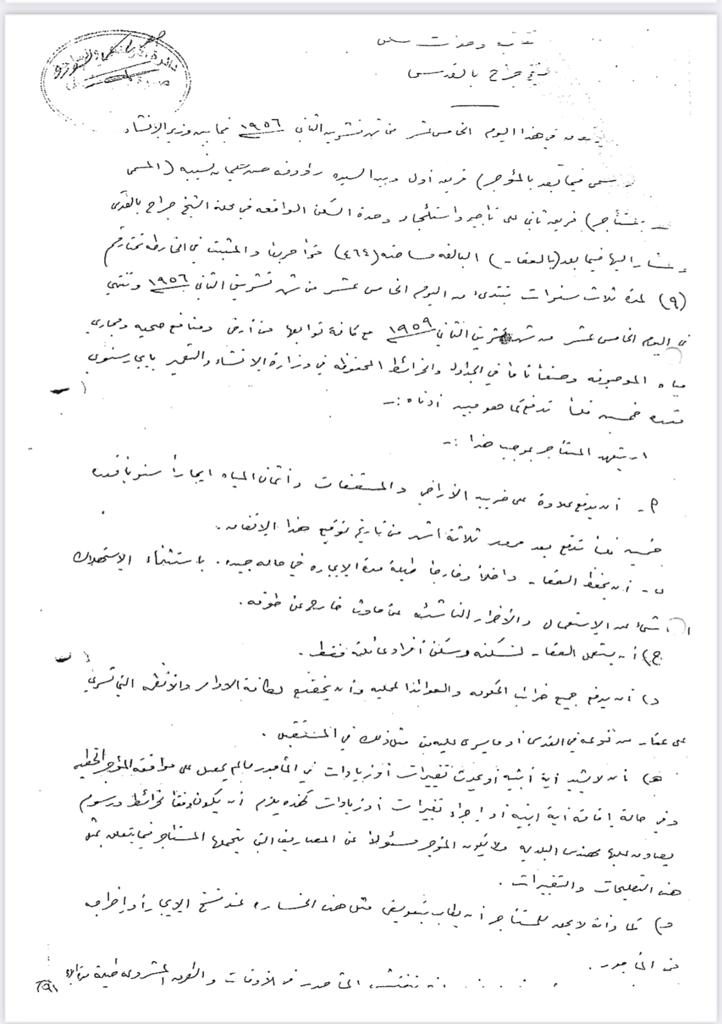 عقد وحدت سكن
في جراح بالقدس
في هذا اليوم الخامس عشر من شهر تشرين الثاني ١٩٥٦ فيما بين وزير الإنشاء
سمى فيما بعد بالمؤجر) فريق أول وبين السيده رؤوفه نسيبه (المسمى
بالمستأجر) فريق ثاني على تأجير واستئجار وحدة السكن الواقعه في محلة الشيخ جراح بالقدس
المشار اليها فيما بعد (بالعقار) البالغه مساحته (٤٦٤) والمثبت في الخارطه تحت رقم
(٩) لمدة ثلاث سنوات تبتدىء من اليوم الخامس عشر من شهر تشرين الثاني ١٩٥٦ وتنتهي
في اليوم الخامس عشر من شهر تشرين الثاني ١٩٥٩ مع كافة توابعها من أرض ومنافع صحيه ومجاري
مياه الموصوفه وصفاً تاماً في الجداول والخرائط المحفوظه في وزارة الإنشاء والتعمير بايجار سنوي
قدره خمسين فلساً تدفع كما هو مبين أدناه :-
١- يتعهد المستأجر بموجب هذا :-
أ- أن يدفع علاوة على ضريبة الأراضي والمسقفات وأثمان المياه ايجاراً سنوياً قدره
خمسين فلساً تدفع بعد مرور ثلاثة أشهر من تاريخ توقيع هذا الإتفاق.
ب- أن يحفظ العقار داخلاً وخارجاً طيلة مدة الإيجاره في حاله جيده. باستثناء الإستهلاك
الناشىء عن الإستعمال والأضرار الناشئه عن حادث خارج عن طوقه.
ج) أن يستعمل العقار لسكنه وسكن أفراد عائلته فقط.
د) أن يدفع جميع ضرائب الحكومه والعوائد المحليه وأن يخضع لكافة الاوامر والأنظمه التي تسري
على عقار من نوعه في القدس أو ما يسري عليه من مثل ذلك في المستقبل.
هـ) أن لا يشيد أية أبنيه أو يحدث تغييرات أو زيادات في المأجور مالم يحصل على موافقة المؤجر الخطيه
وفي حالة إقامة أية ابنيه أو إجراء تغييرات أو زيادات كهذه يلزم أن يكون وفقاً لخرائط ورسوم
يصادق عليها مهندس البلديه ولا يكون المؤجر مسئولاً عن المصاريف التي يتحملها المستأجر فيما يتعلق بمثل
هذه التصليحات والتغييرات.
و) كما وأنه لا يحق للمستأجر أن يطالب بتعويض مثل هذه الخساره عند فسخ الإيجار أو إخراجه
من المأجور.
المأجور في الأوقات والطرق المشروعه طيلة مدة